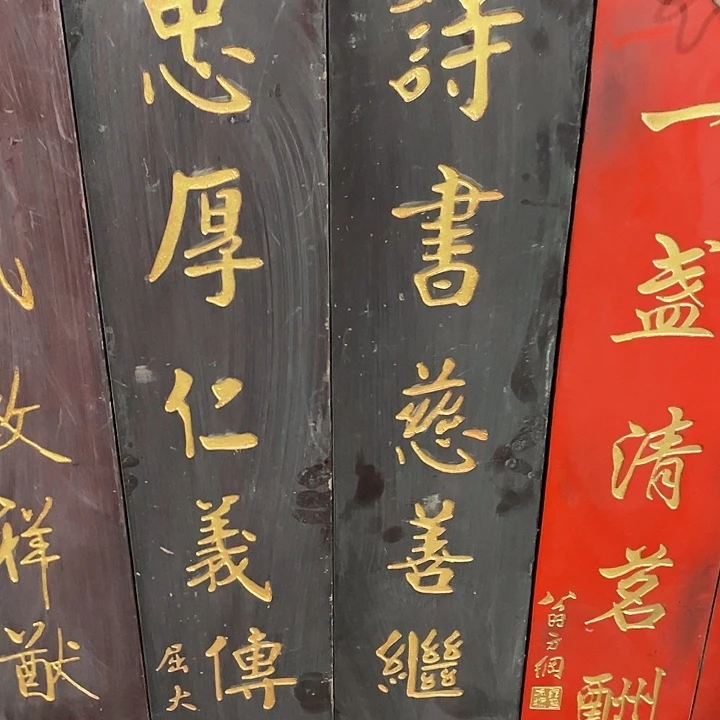 一盏清茗酬
翁方綱
詩書慈善繼
忠厚仁義傳
屈大
祥猷